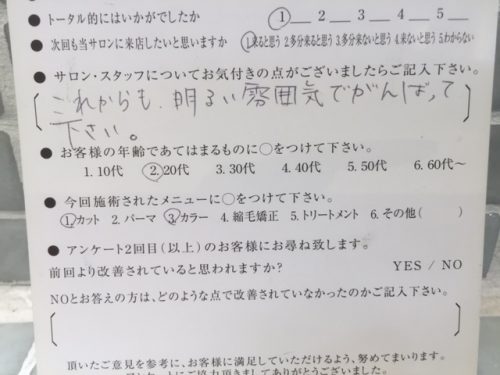 ● トータル的にはいかがでしたか ① __ 2 __ 3 __ 4 __ 5 __
● 次回も当サロンに来店したいと思いますか ①.来ると思う 2.多分来ると思う 3.多分来ないと思う 4.来ないと思う 5.わからない
● サロン・スタッフについてお気付きの点がございましたらご記入下さい。
これからも、明るい雰囲気でがんばって
下さい。
● お客様の年齢であてはまるものに○をつけて下さい。
1. 10代 ②. 20代 3. 30代 4. 40代 5. 50代 6. 60代～
● 今回施術されたメニューに○をつけて下さい。
①.カット 2. パーマ ③.カラー 4. 縮毛矯正 5.トリートメント 6. その他( )
● アンケート2回目(以上)のお客様にお尋ね致します。
前回より改善されていると思われますか? YES / NO
NOとお答えの方は、どのような点で改善されていなかったのかご記入下さい。
頂いたご意見を参考に、お客様に満足していただけるよう、努めてまいります。
アンケートにご協力頂きましてありがとうございました。